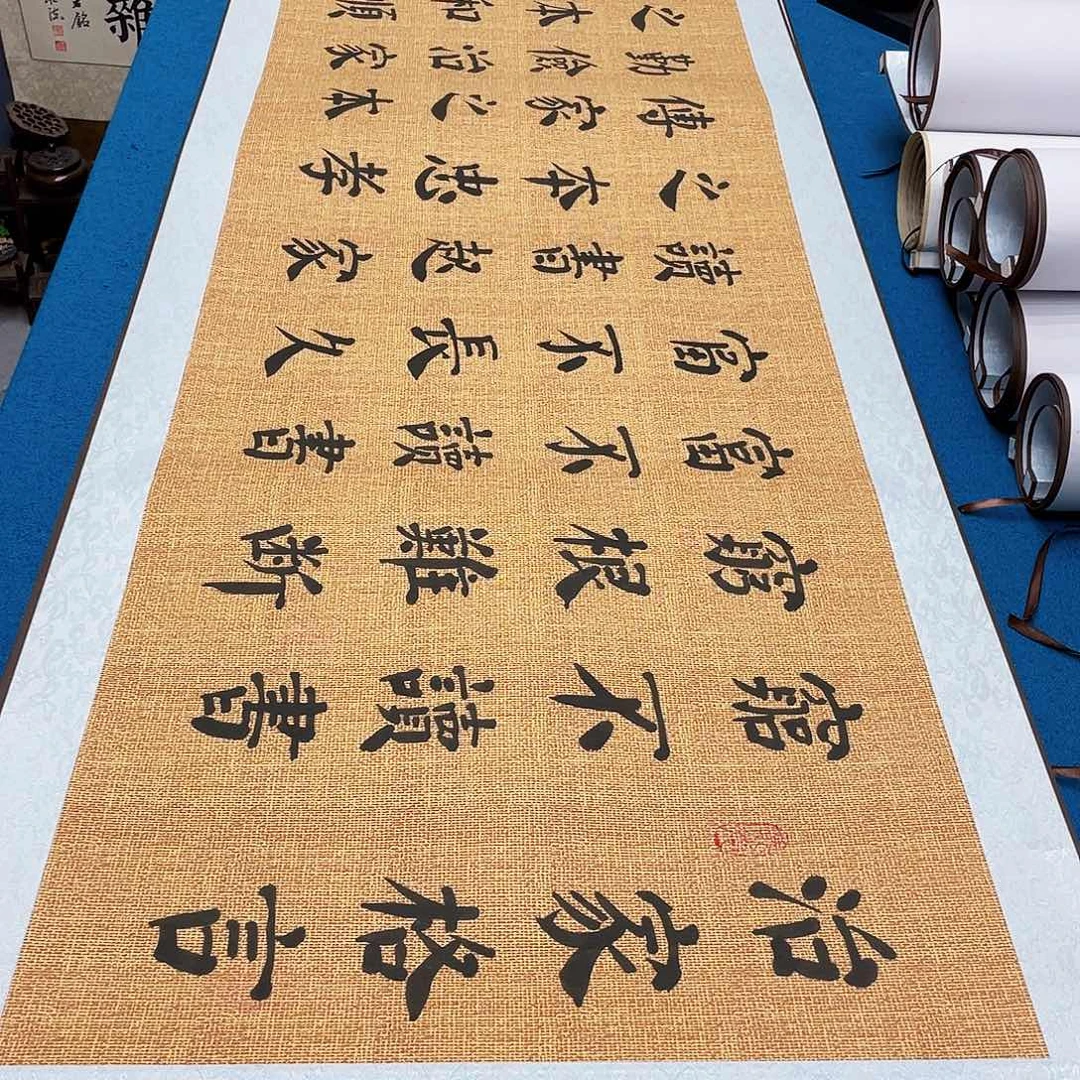 治家格言
窮不讀書
窮根難断
富不讀書
富不長久
讀書起家
之本忠孝
傳家之本
勤儉治家
之本和順